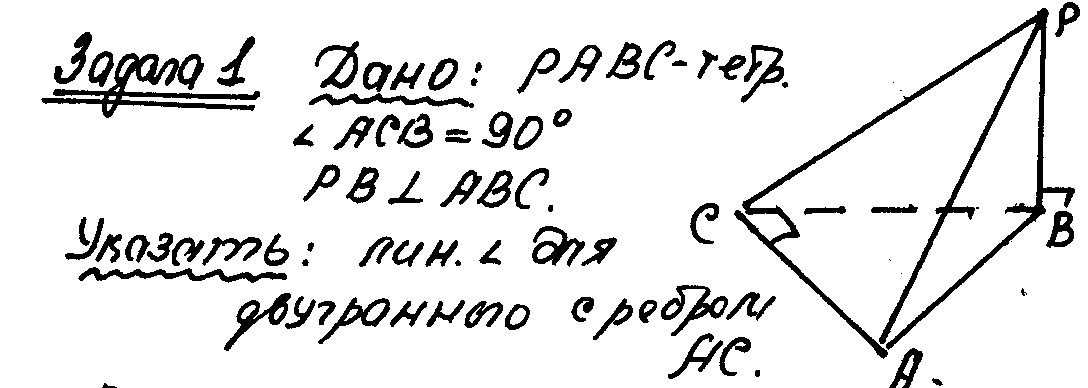 Задача 1 Дано: PABC-тетр.
∠ ACB = 90°
PB ⊥ ABC.
Указать: лин. ∠ для
двугранного с ребром
AC.
P
C
B
A.